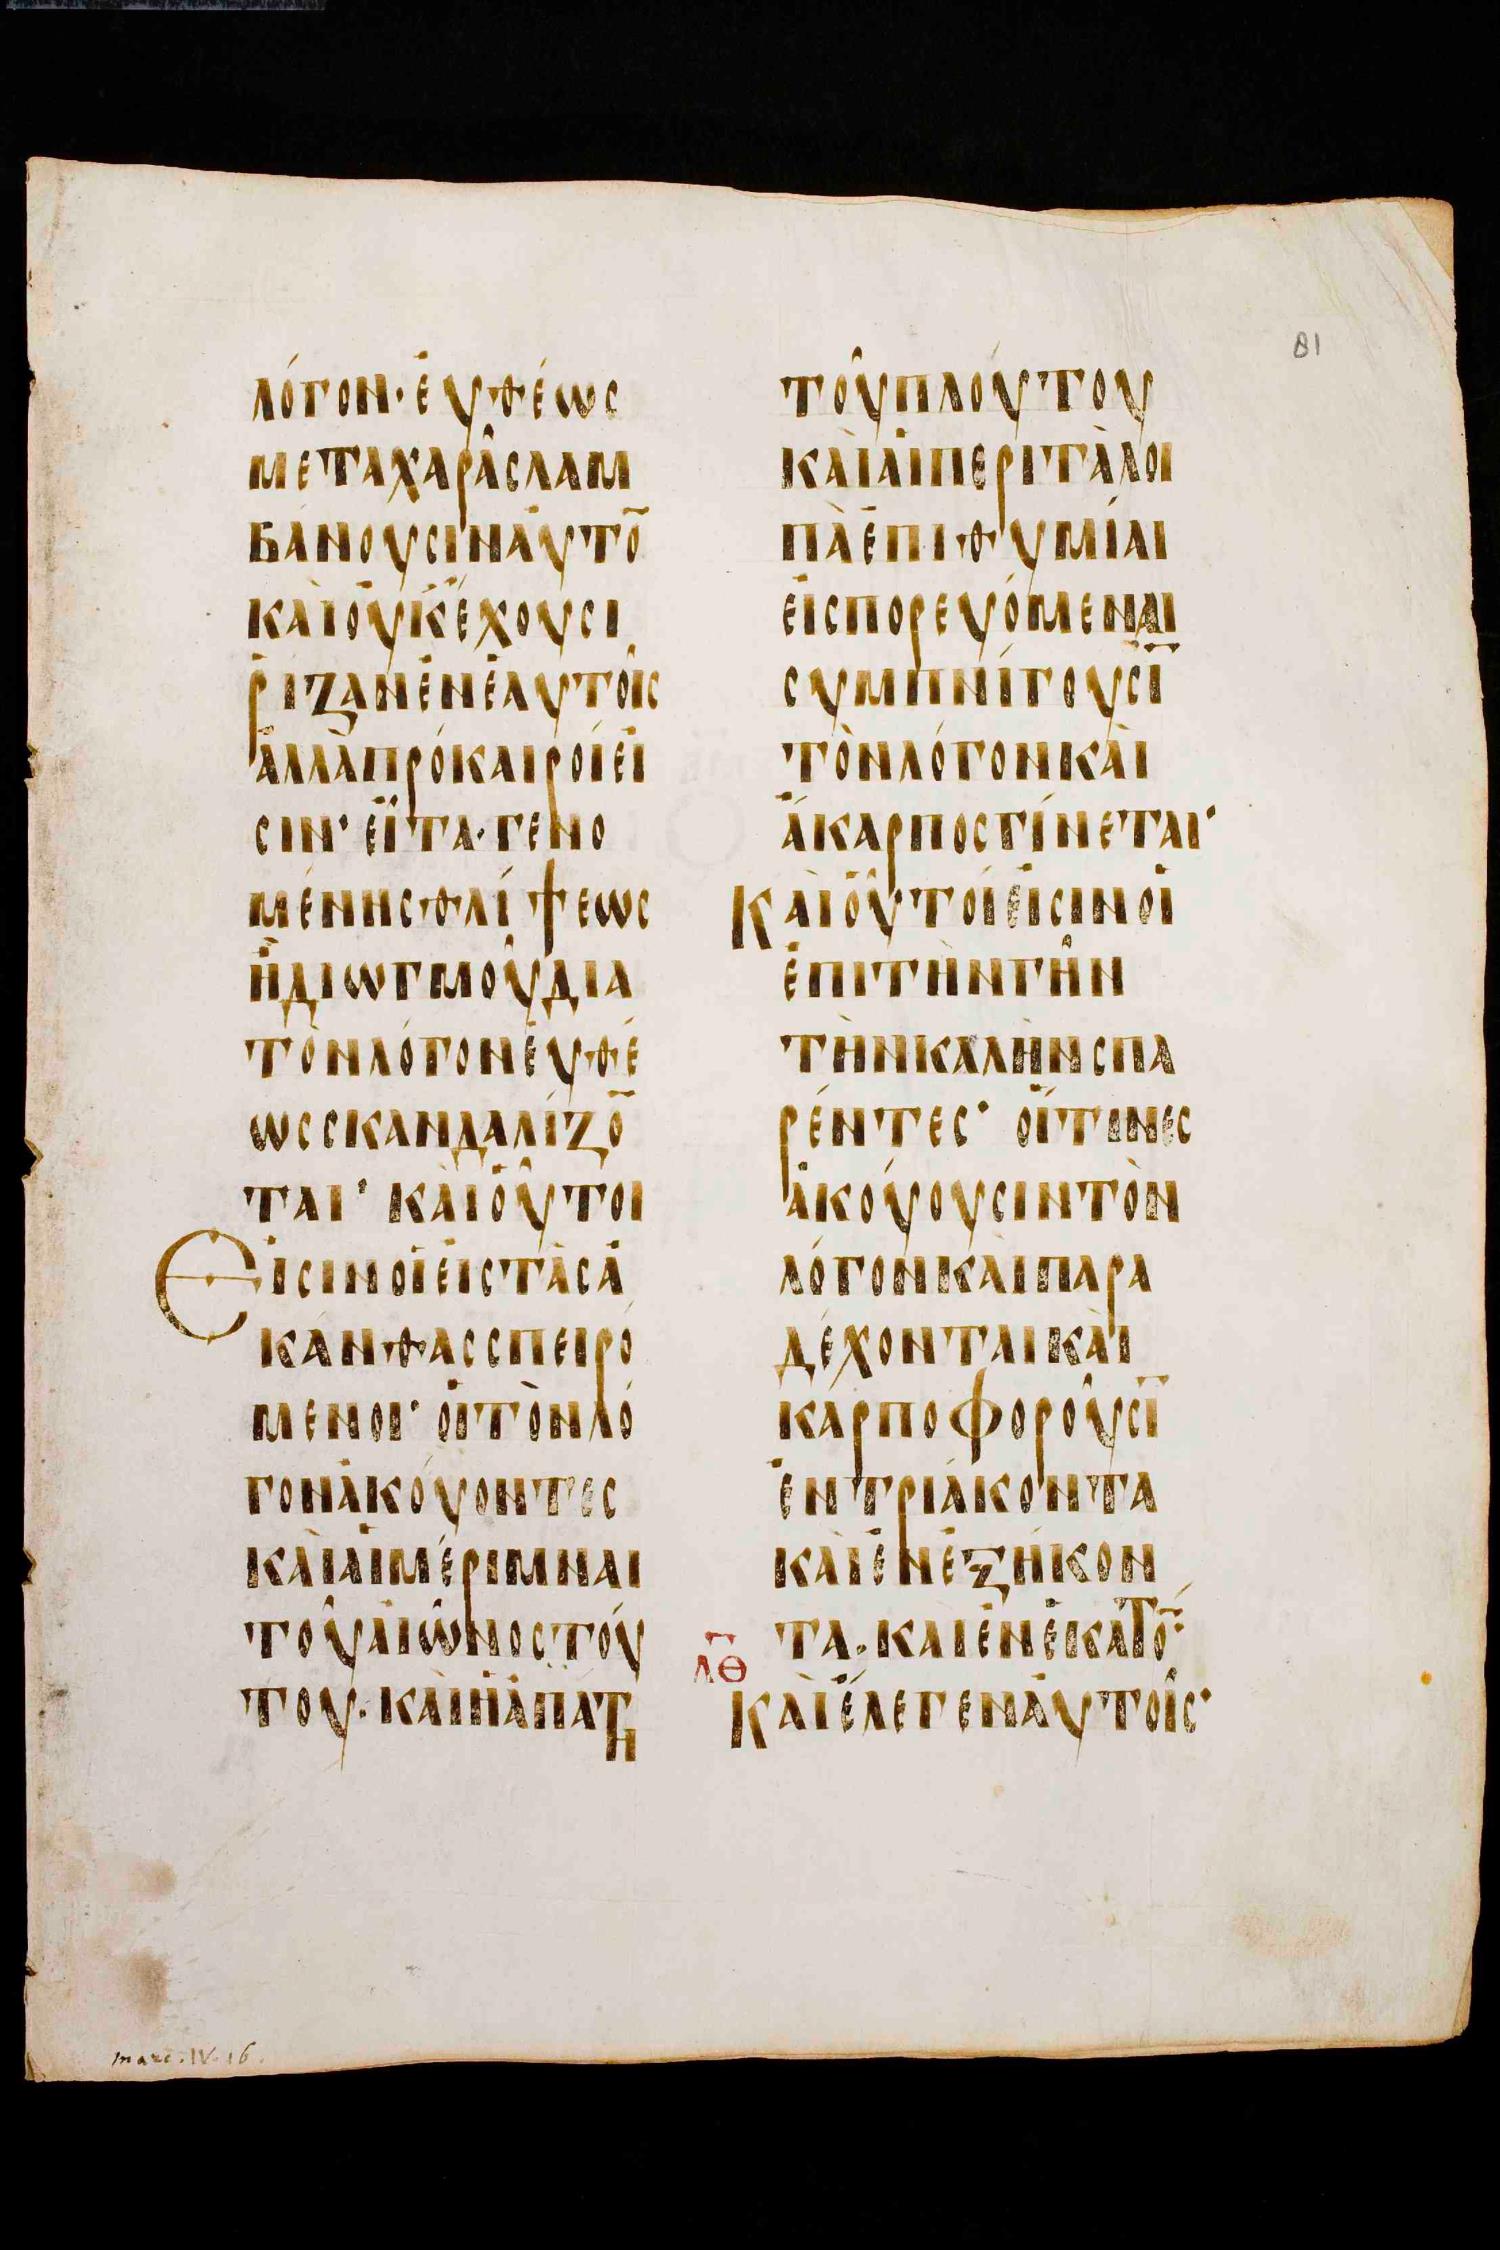 81
λόγον· ἐυθέως
μεταχαρᾶςλαμ
βάνουσιναὐτο̅
κὰιοὐκἔχουσι
ῥιζανἐνἑαυτοῖς
ἀλλὰπρόκαιροίἐι
σιν· εἶτα· γενο
μένηςθλίψεως
ἢδιωγμοῦδια
τὸνλόγονἐυθέ
ωςσκανδαλίζο̅
ται· κὰιοὗτοι
Ἐισινοἱἐιςτὰςἀ
κάνθαςσπειρό
μενοι· οἱτὸνλό
γονἀκόυοντες
κὰιἁιμέριμναι
τοῦἀιῶνοςτόυ
του· κὰιἡἀπάτη
τοῦπλόυτου
κὰιἁιπεριτὰλοι
πὰἐπιθυμίαι
ἐισπορευόμεναι
συμπνίγουσι̅
τὸνλόγονκὰι
ἄκαρποςγίνεται·
Κὰιοὗτοίἐισινοἱ
ἐπιτὴνγῆν
τὴνκαλὴνσπα
ρέντες· οἵτινες
ἀκόυουσιντὸν
λόγονκὰιπαρα
δέχονταικὰι
καρποφοροῦσι̅
ἐντριάκοντα
κὰιἐνεξήκον
τα· καιἐνἑκατο̅·
λ̅θ̅
Κὰιἔλεγεναὐτοῖς·
marc. IV. 16.